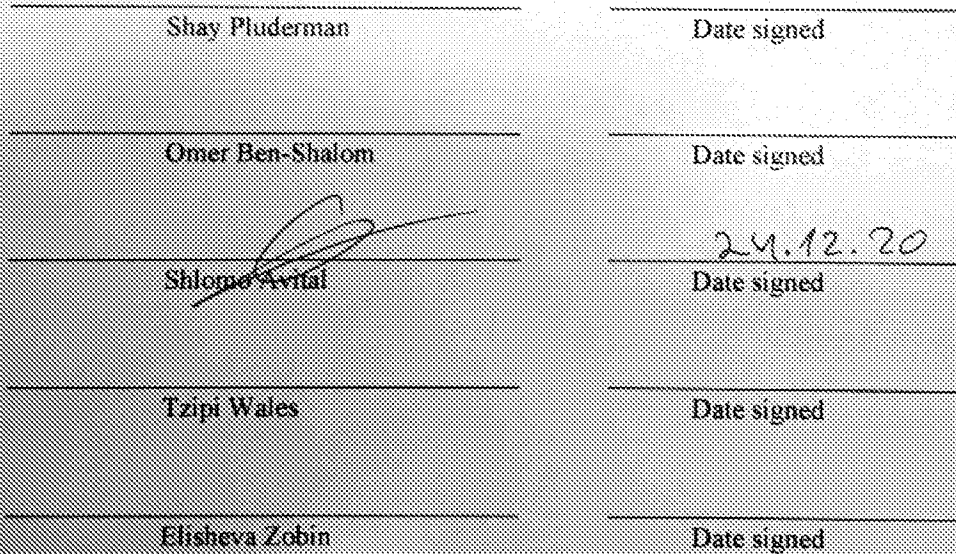 Shay Pluderman Date signed
Omer Ben-Shalom Date signed
24.12.20
Shlomo Avital Date signed
Tzipi Wales Date signed
Elisheva Zobin Date signed